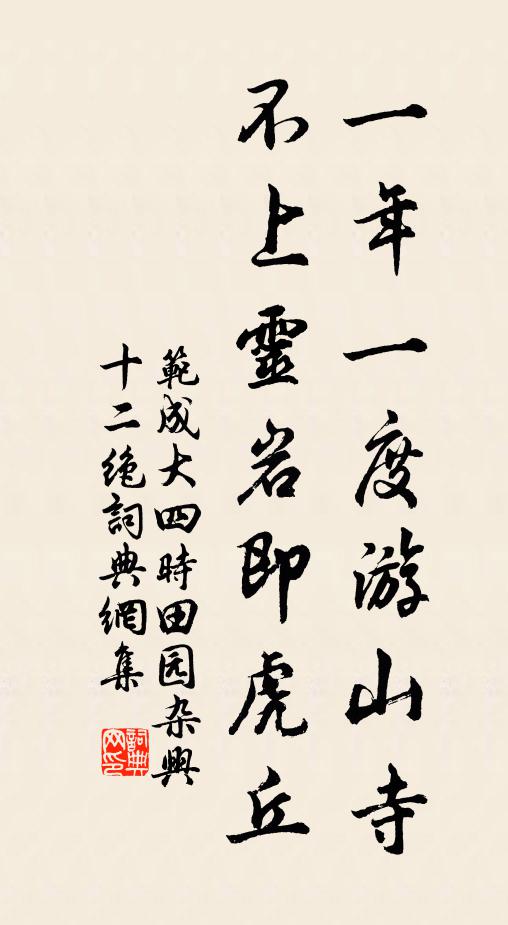 一年一度游山寺
不上靈岩即虎丘
範成大四時田园杂興
十二絶詞典網集
詞典网印